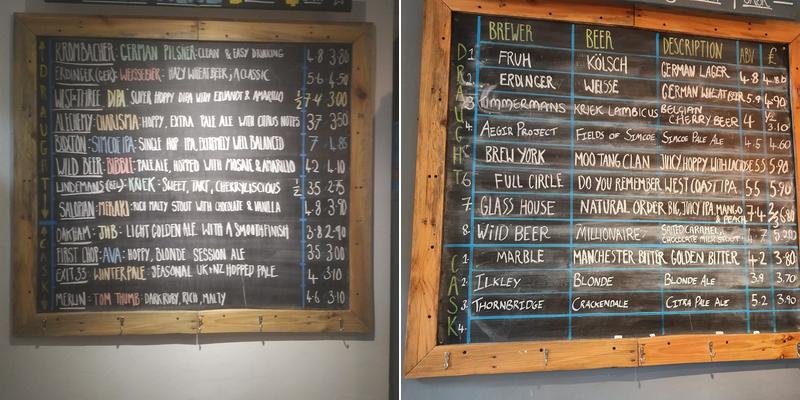 DRAUGHT
KROMBACHER: GERMAN PILSNER: CLEAN & EASY DRINKING 4.8 3.80
ERDINGER (GER): WEISSBIER: HAZY WHEATBEER; A CLASSIC 5.6 4.50
DIPA: SUPER HOPPY DIPA WITH & AMARILLO 1/2 7.4 3.00
ALCHEMY: CHARISMA: HOPPY, EXTRA PALE ALE WITH CITRUS NOTES 3.7 3.50
BUXTON: SIMCOE IPA: SINGLE HOP IPA, EXTREMELY WELL BALANCED 7 4.85
WILD BEER: BIBBLE: PALE ALE, HOPPED WITH MOSAIC & AMARILLO 4.2 4.10
LINDEMANS: KRIEK: SWEET, TART, CHERRYLISCIOUS 1/2 3.5 2.75
SALOPIAN: MERAKI: RICH MALTY STOUT WITH CHOCOLATE & VANILLA 4.8 3.90
CASK
OAKHAM: JHB: LIGHT GOLDEN ALE WITH A SMOOTH FINISH 3.8 2.90
FIRST CHOP: AVA: HOPPY, BLONDE SESSION ALE 3.5 3.00
EXIT 33: WINTER PALE: SEASONAL UK+NZ HOPPED PALE 4 3.10
MERLIN: TOM THUMB: DARK RUBY, RICH, MALTY 4.6 3.10
BREWER BEER DESCRIPTION ABV £
DRAUGHT
1 FRUH KÖLSCH GERMAN LAGER 4.8
2 ERDINGER WEISSE GERMAN WHEAT BEER 5.9 4.90
3 TIMMERMANS KRIEK LAMBICUS BELGIAN CHERRY BEER 4 1/2 3.10
4 AEGIR PROJECT FIELDS OF SIMCOE SIMCOE PALE ALE 4.5 4.60
5 BREW YORK MOO TANG CLAN JUICY HOPPY WITH LACTOSE 5.5 5.90
6 FULL CIRCLE DO YOU REMEMBER WEST COAST IPA 5.5 5.90
7 GLASS HOUSE NATURAL ORDER BIG, JUICY IPA, MANGO & PEACH 7.4 2/3
8 WILD BEER MILLIONAIRE SALTED CARAMEL, CHOCOLATE MILK STOUT 4.7 5.20
CASK
1 MARBLE MANCHESTER BITTER GOLDEN BITTER 4.2 3.80
2 ILKLEY BLONDE BLONDE ALE 3.9 3.70
3 THORNBRIDGE CRACKENDALE CITRA PALE ALE 5.2 3.90
4.